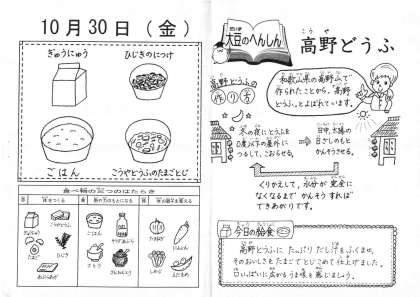 10月30日（金）
ぎゅうにゅう
ひじきのにつけ
ごはん
こうやどうふのたまごとじ
食べ物の三つのはたらき
ぎゅうにゅう
こうやどうふ
たまご
ひじき
あぶらあげ
ごはん
さとう
にんじん
しめじ
えだまめ
大豆のへんしん
こうや
高野どうふ
高野どうふの
作り方
和歌山県の高野山で
作られたことから、「高野
どうふ」とよばれています。
冬の夜にとうふを
0度以下の屋外に
つるして、こおらせる。
日中、太陽の
日ざしのもと
かんそうさせる。
くりかえして、水分が完全に
なくなるまでかんそうすれば
できあがりです。
今日の給食
高野どうふに たっぷり だし汁をふくませ、
そのおいしさをたまごでとじこめて仕上げました。
口いっぱいに広がるうま味を感じましょう。